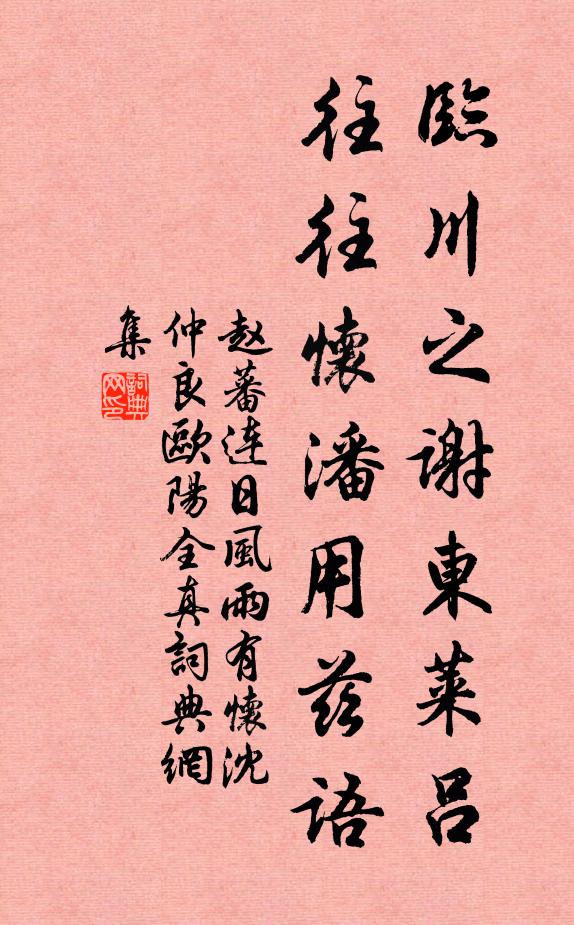 臨川之謝東萊呂
往往懷潘用兹語
赵蕃連日風雨有懷沈
仲良歐陽全真詞典網
集
詞典
网印